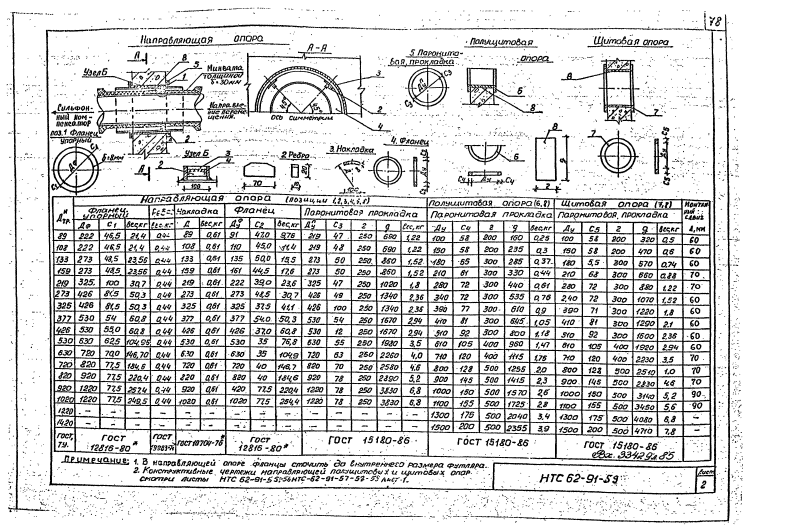 78
Направляющая опора
А-А
5 Паронито-
вая, прокладка
Полущитовая
опора
Щитовая опора
А
Узел Б
8
5
1
Минвата
толщиной
δ=30мм
Направле-
ние переме-
щения.
3
2
4
ось симметрии
Сильфон-
ный ком-
пенсатор
поз.1 Фланец
2
Узел Б
3
4
100
2 Ребра
70
3. Накладка
4. Фланец
6
8
7
Направляющая опора (позиции 1,2,3,4,5,8)
Полущитовая опора (6,8)
Щитовая опора (7,8)
Фланец упорный
Накладка
Фланец
Паронитовая прокладка
Паронитовая прокладка
Паронитовая прокладка
89 222 46,5 21,4 0,44 89 0,61 91 47,0 9,76 219 47 250 690 1,22 100 58 200 160 0,25 100 58 200 320 0,5 60
108 222 46,5 21,4 0,44 108 0,61 110 45,0 11,4 219 48 250 690 1,22 150 58 200 235 0,3 150 58 200 470 0,6 60
133 273 48,5 23,56 0,44 133 0,61 135 50,0 273 50 250 860 1,52 180 65 300 285 0,37 180 5,5 300 570 0,74 60
159 273 48,5 23,56 0,44 159 0,61 161 44,5 17,6 273 50 250 860 1,52 210 61 300 330 0,44 210 68 300 660 0,88 70
219 325 100 30,7 0,44 219 0,61 222 39,0 23,6 325 47 250 1020 1,8 280 72 300 440 0,61 280 72 300 880 1,22 70
273 426 81,5 50,3 0,44 273 0,61 273 48,5 30,7 426 49 250 1340 2,36 340 72 300 535 0,76 240 72 300 1070 1,52 60
325 426 81,5 50,3 0,44 325 0,61 326 37,5 41,1 426 100 250 1340 2,36 390 77 300 610 0,9 390 71 300 1220 1,8 60
377 530 54 60,8 0,44 377 0,61 377 54,0 50,3 530 54 250 1670 2,94 410 81 300 645 1,05 410 81 300 1290 2,1 60
426 530 55,0 60,8 0,44 426 0,61 426 37,0 60,8 530 12 250 1670 2,94 510 92 300 800 1,18 510 92 300 1600 2,36 60
530 630 62,5 104,96 0,44 530 0,61 530 35 76,8 630 55 250 1980 3,5 610 105 400 960 1,47 610 105 400 1920 2,94 60
630 720 70,0 146,70 0,44 630 0,61 630 35 104,9 720 63 250 2260 4,0 710 120 400 1115 1,75 710 120 400 2230 3,5 70
720 820 77,5 184,6 0,44 720 0,61 720 40 146,7 820 70 250 2580 4,6 800 128 500 1255 2,0 800 128 500 2510 70
820 920 77,5 220,4 0,44 820 0,61 820 40 184,6 920 78 250 2890 5,2 900 145 500 1415 2,3 900 145 500 2830 4,6 70
920 1220 77,5 257,4 0,44 920 0,61 920 77,5 220,4 1220 78 250 3830 6,8 1000 150 500 1570 2,6 1000 150 500 3140 5,2 90
1020 1220 77,5 249,5 0,44 1020 0,61 1020 77,5 254,4 1220 78 250 3830 6,8 1100 155 500 1725 2,8 1100 155 500 3450 5,6 90
1220 – – – – – – – – – – – – – – 1300 175 500 2040 3,4 1300 175 500 4080 6,8 –
1420 – – – – – – – – – – – – – – 1500 200 500 2355 3,9 1500 200 500 4710 7,8 –
ГОСТ, ТУ.
ГОСТ 12816-80*
ГОСТ 19704-76
ГОСТ 12816-80*
ГОСТ 15180-86
ГОСТ 15180-86
ГОСТ 15180-86
Примечание: 1. В направляющей опоре фланцы сточить до внутреннего размера футляра.
2. Конструктивные чертежи направляющей полущитовых и щитовых опор
смотри листы
НТС 62-91-59
Лист
2